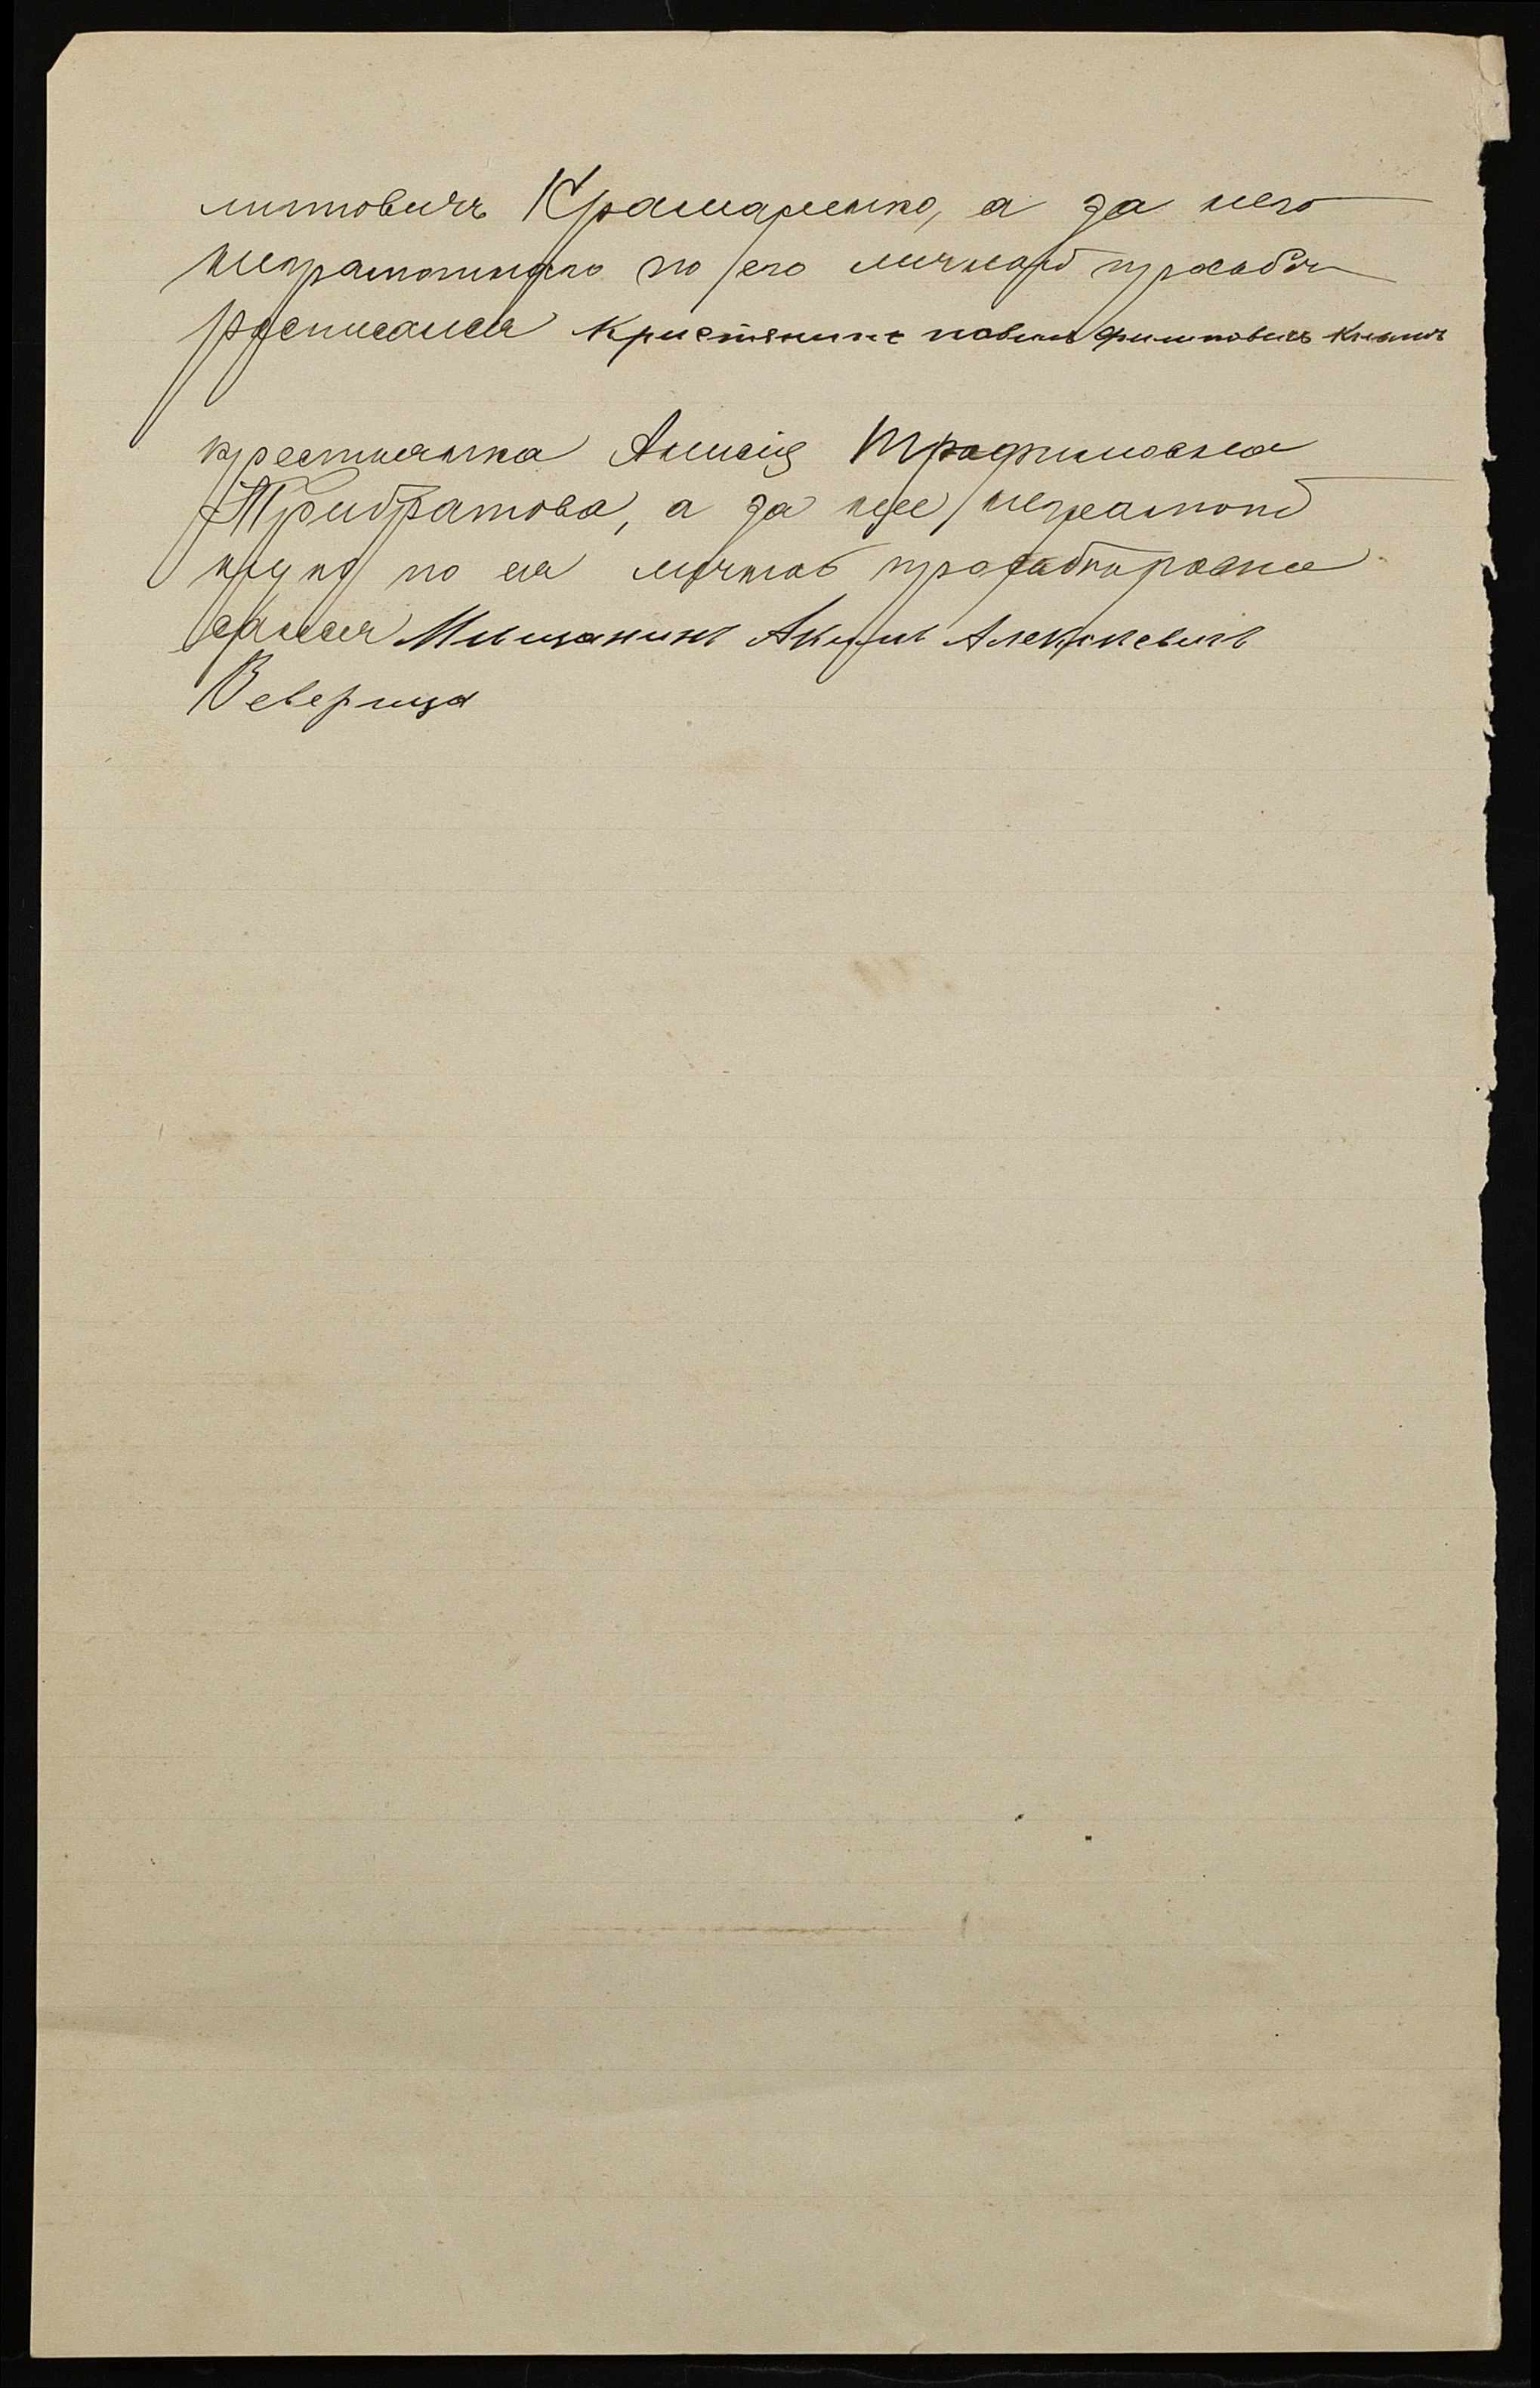 липовичъ Крамаренко, а за него
неграмотнаго по его личной прозьбѣ
росписался Кристянинъ павелъ филиповичъ
крестьянка Анисія Трофимовна
Трибратова, а за нее неграмот
ную по ея личной прозьбѣ роспи
сался Мѣщанинъ Акимъ Алексѣевичъ
Веверица